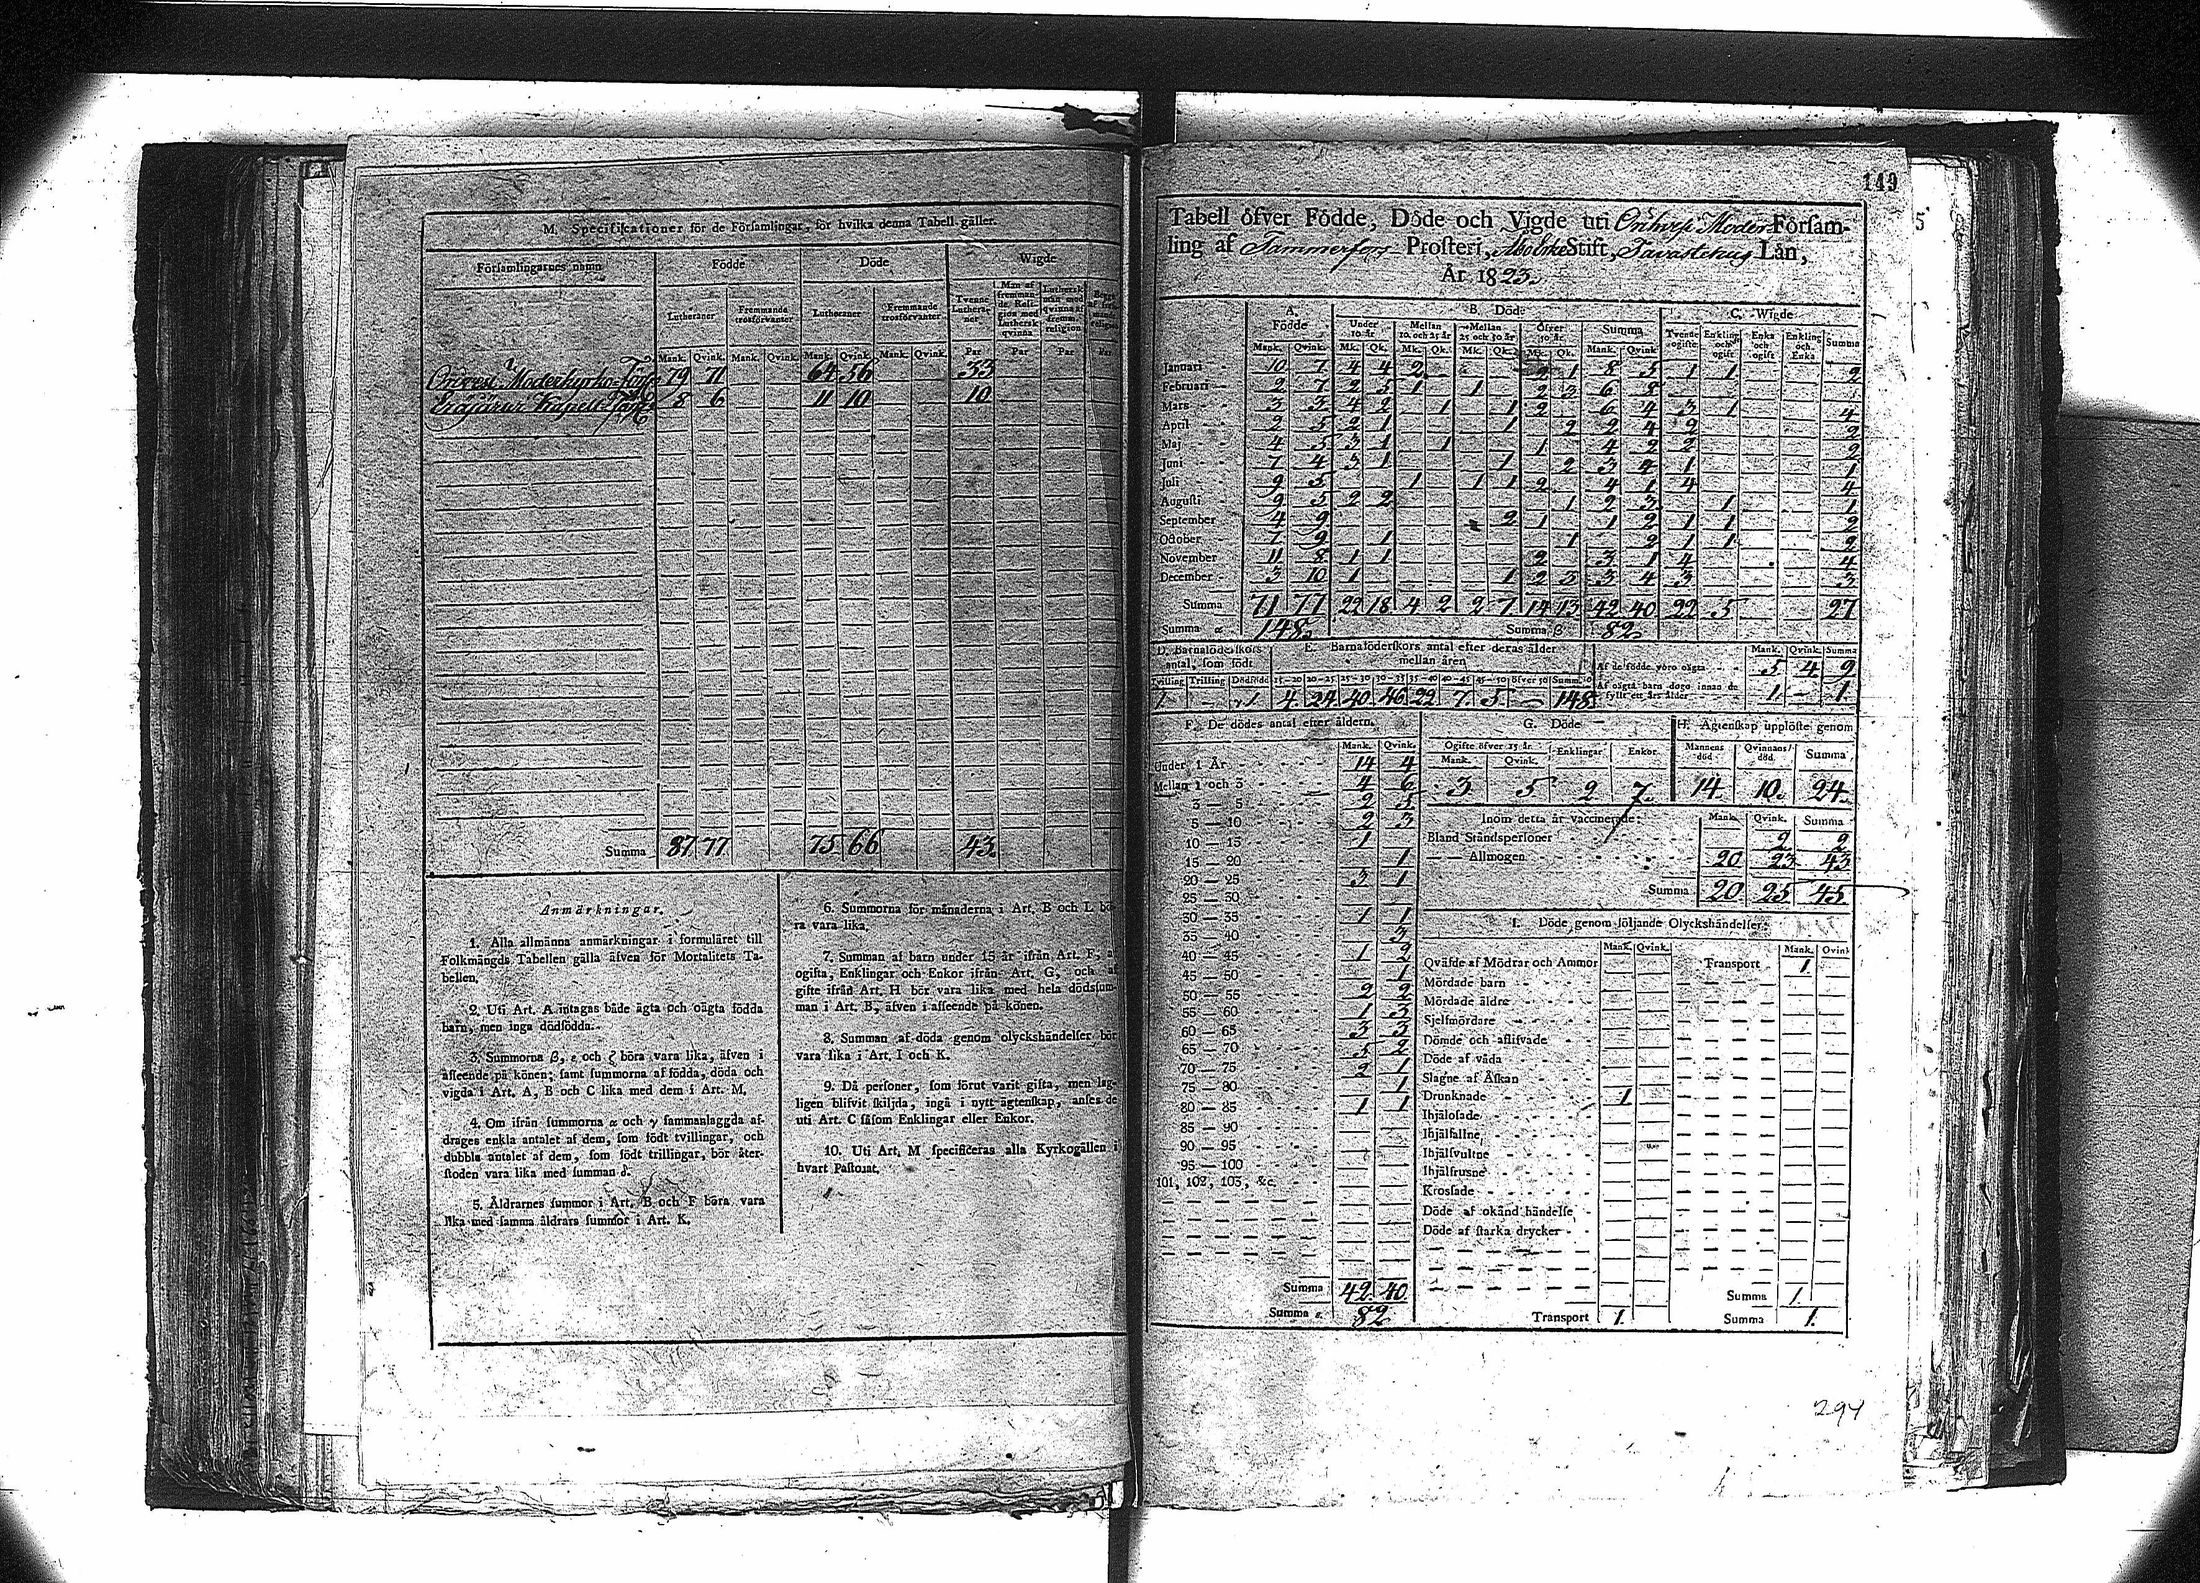 M. Specifikationer för de Församlingar, för hvilka denna Tabell gäller.
Församlingarnes namn Födde Döde Wigde
Lutheraner Fremmande trosförvanter Lutheraner Fremmande trosförvanter Tvenne Lutheraner Man af fremmande Religion med Luthersk qvinna Luthersk man med qvinna af fremm. religion
Mank. Qvink. Mank. Qvink. Mank. Qvink. Mank. Qvink. Par Par Par Par
Orivesi Moderkyrko-Förs. 79 71 64 56 33
Eräjärvi Kapell 8 6 11 10 10
Summa 87 77 75 66 43
Anmärkningar.
1. Alla allmänna anmärkningar i formuläret till
Folkmängds Tabellen gälla äfven för Mortalitets Ta-
bellen.
2. Uti Art. A intagas både ägta och oägta födda
barn, men inga dödfödda.
3. Summorna β, ε och ζ böra vara lika, äfven i
afseende på könen; samt summorna af födda, döda och
vigda i Art. A, B och C lika med dem i Art. M.
4. Om ifrån summorna α och γ sammanlaggda af-
drages enkla antalet af dem, som födt tvillingar, och
dubbla antalet af dem, som födt trillingar, bör åter-
stoden vara lika med summan δ.
5. Åldrarnes summor i Art. B och F böra vara
lika med samma åldrars summor i Art. K.
6. Summorna för månaderna i Art. B och L bö-
ra vara lika.
7. Summan af barn under 15 år ifrån Art. F, a
ogifta, Enklingar och Enkor ifrån Art. G, och af
gifte ifrån Art. H bör vara lika med hela dödssum-
man i Art. B, äfven i afseende på könen.
8. Summan af döda genom olyckshändelser bör
vara lika i Art. I och K.
9. Då personer, som förut varit gifta, men lag-
ligen blifvit skiljda, ingå i nytt ägtenskap, anses de
uti Art. C såsom Enklingar eller Enkor.
10. Uti Art. M specificeras alla Kyrkogällen i
hvart Pastorat.
149
Tabell öfver Födde, Döde och Vigde uti Orihvesi Moder Församling
ling af Tammerfors Prosteri, Åbo Erke Stift, Tavastehus Län,
År 1823.
A. Födde B. Döde C. Wigde
Under 10 år Mellan 10 och 25 år Mellan 25 och 50 år Öfver 50 år Summa Tvenne ogifte Enkling och ogift Enka och ogift Enkling och Enka Summa
Mank. Qvink. Mk. Qk. Mk. Qk. Mk. Qk. Mk. Qk. Mank. Qvink.
Januari 10 7 4 4 2 2 1 8 5 1 1 2
Februari 2 7 2 5 1 1 2 3 6 8
Mars 3 3 4 2 1 1 2 6 4 3 1 4
April 2 5 2 1 1 2 2 4 2 2
Maj 4 5 3 1 1 1 4 2 2 2
Juni 7 4 3 1 1 2 3 4 1 1
Juli 9 5 1 1 1 2 4 1 4 4
Augusti 9 5 2 2 1 2 3 1 1
September 4 9 2 1 1 2 1 1 2
October 7 9 1 1 2 1 1 2
November 11 8 1 1 2 3 1 4 4
December 3 10 1 1 2 3 3 4 3 3
Summa 71 77 22 18 4 2 2 7 14 13 42 40 22 5 27
Summa α 148 Summa β 82
D. Barnaföderskors antal, som födt E. Barnaföderskors antal efter deras ålder mellan åren Mank. Qvink. Summa
Af de födde voro oägta 5 4 9
Tvilling Trilling Dödfödde 15—20 20—25 25—30 30—35 35—40 40—45 45—50 öfver 50 Summa δ
Af oägta barn dogo innan de fyllt ett års ålder 1 — 1
1 — 1 4 24 40 46 22 7 5 — 148
F. De dödes antal efter åldern. G. Döde H. Ägtenskap upplöste genom
Mank. Qvink. Ogifte öfver 15 år Enklingar Enkor Mannens död Qvinnans död Summa
Mank. Qvink.
3 5 2 7 14 10 24
Under 1 År 14 4
Mellan 1 och 3 4 6
3 — 5 2 5
5 — 10 2 3
10 — 15 1
15 — 20 1
20 — 25 3 1
25 — 30
30 — 35 1 1
35 — 40 3
40 — 45 1 2
45 — 50 1
50 — 55 2 2
55 — 60 1 3
60 — 65 3 3
65 — 70 5 2
70 — 75 2 1
75 — 80 1
80 — 85 1 1
85 — 90
90 — 95
95 — 100
101, 102, 103, &c.
Summa 42 40
Summa ε 82
Inom detta år vaccinerade: Mank. Qvink. Summa
Bland Ståndspersoner 2 2
— — Allmogen 20 23 43
Summa 20 25 45
I. Döde genom följande Olyckshändelser:
Mank. Qvink. Mank. Qvink.
Qväfde af Mödrar och Ammor Transport 1
Mördade barn
Mördade äldre
Sjelfmördare
Dömde och aflifvade
Döde af våda
Slagne af Åskan
Drunknade 1
Ihjälofade
Ihjälfallne
Ihjälsvultne
Ihjälfrusne
Krossade
Döde af okänd händelse
Döde af starka drycker
Summa 1
Transport 1 Summa 1
294